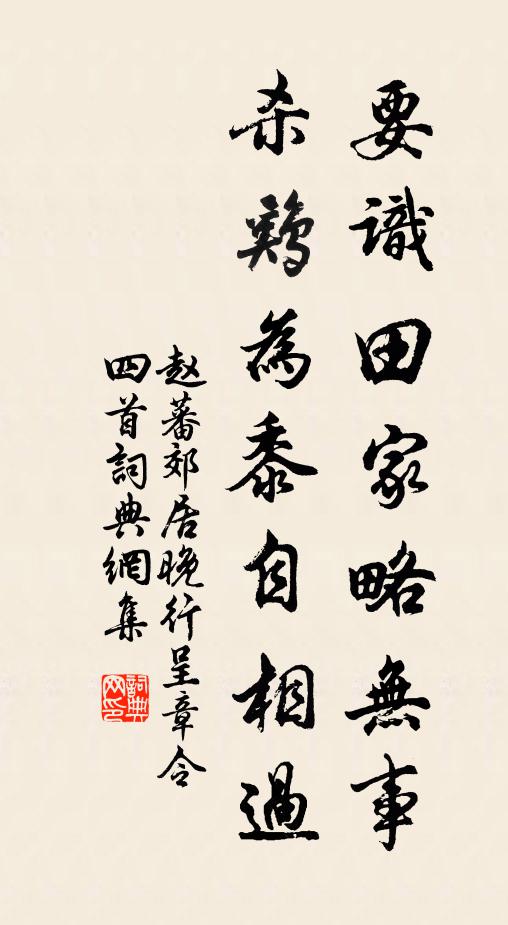 要識田家略無事
杀鷄為黍自相過
赵蕃郊居晚行呈章令
四首詞典網集
詞典
网印